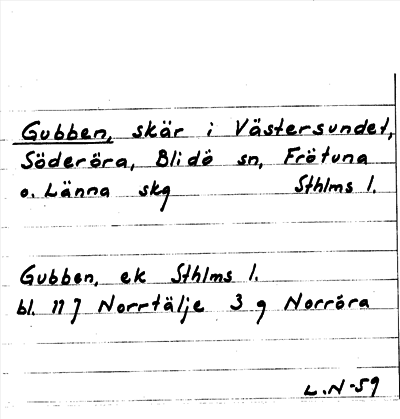 Gubben, skär i Västersundet,
Söderöra, Blidö sn, Frötuna
o. Länna skg Sthlms l.
Gubben, ek Sthlms l.
bl. 117 Norrtälje 3 g Norröra
L.N-59